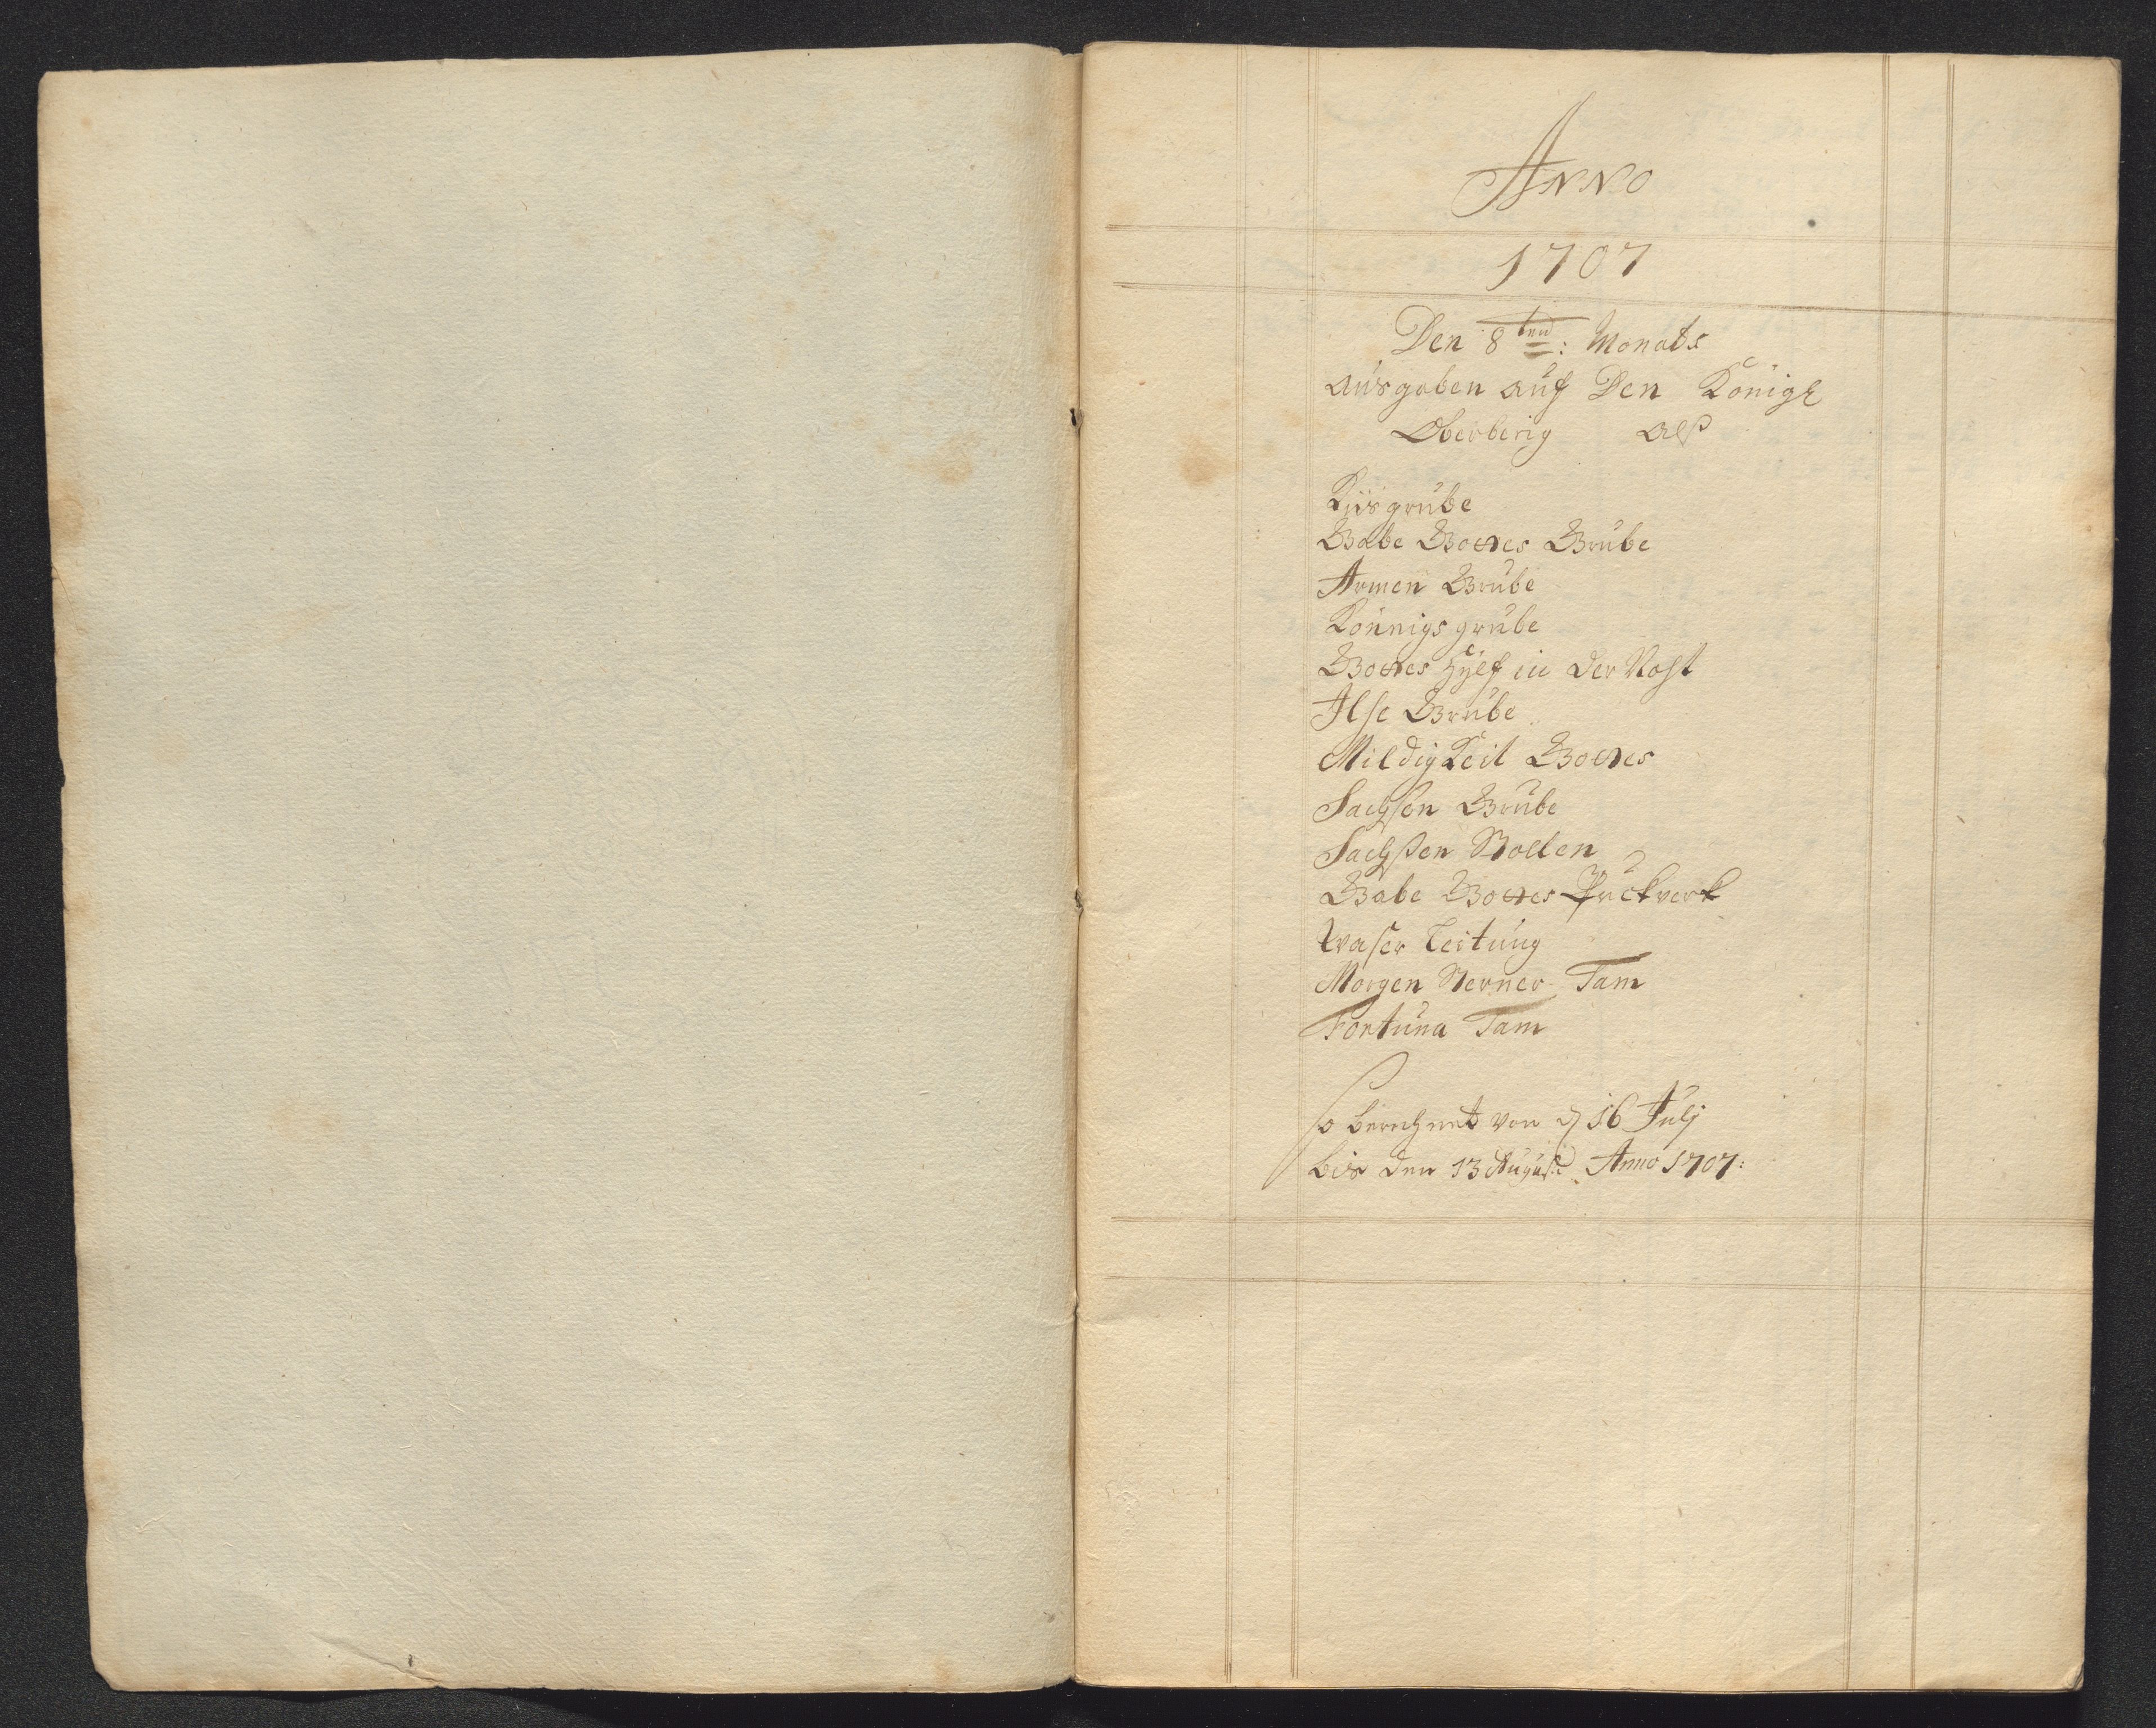 Anno
1707
Den 8ten: Monats
ausgaben auf Den Königl
Oberberig alß
Kiisgrube
Gabe Gottes Grube
Armen Grube
Könnigs grube
Gottes hylf in der Noht
Ilse Grube
Mildigkeit Gottes
Sachsen Grube
Sachßen Stollen
Gabe Gottes Puckverk
Waser Leitung
Morgen Sterner Tam
Fortuna Tam
so berechnet von d 16 Julj
bis den 13 August Anno 1707: